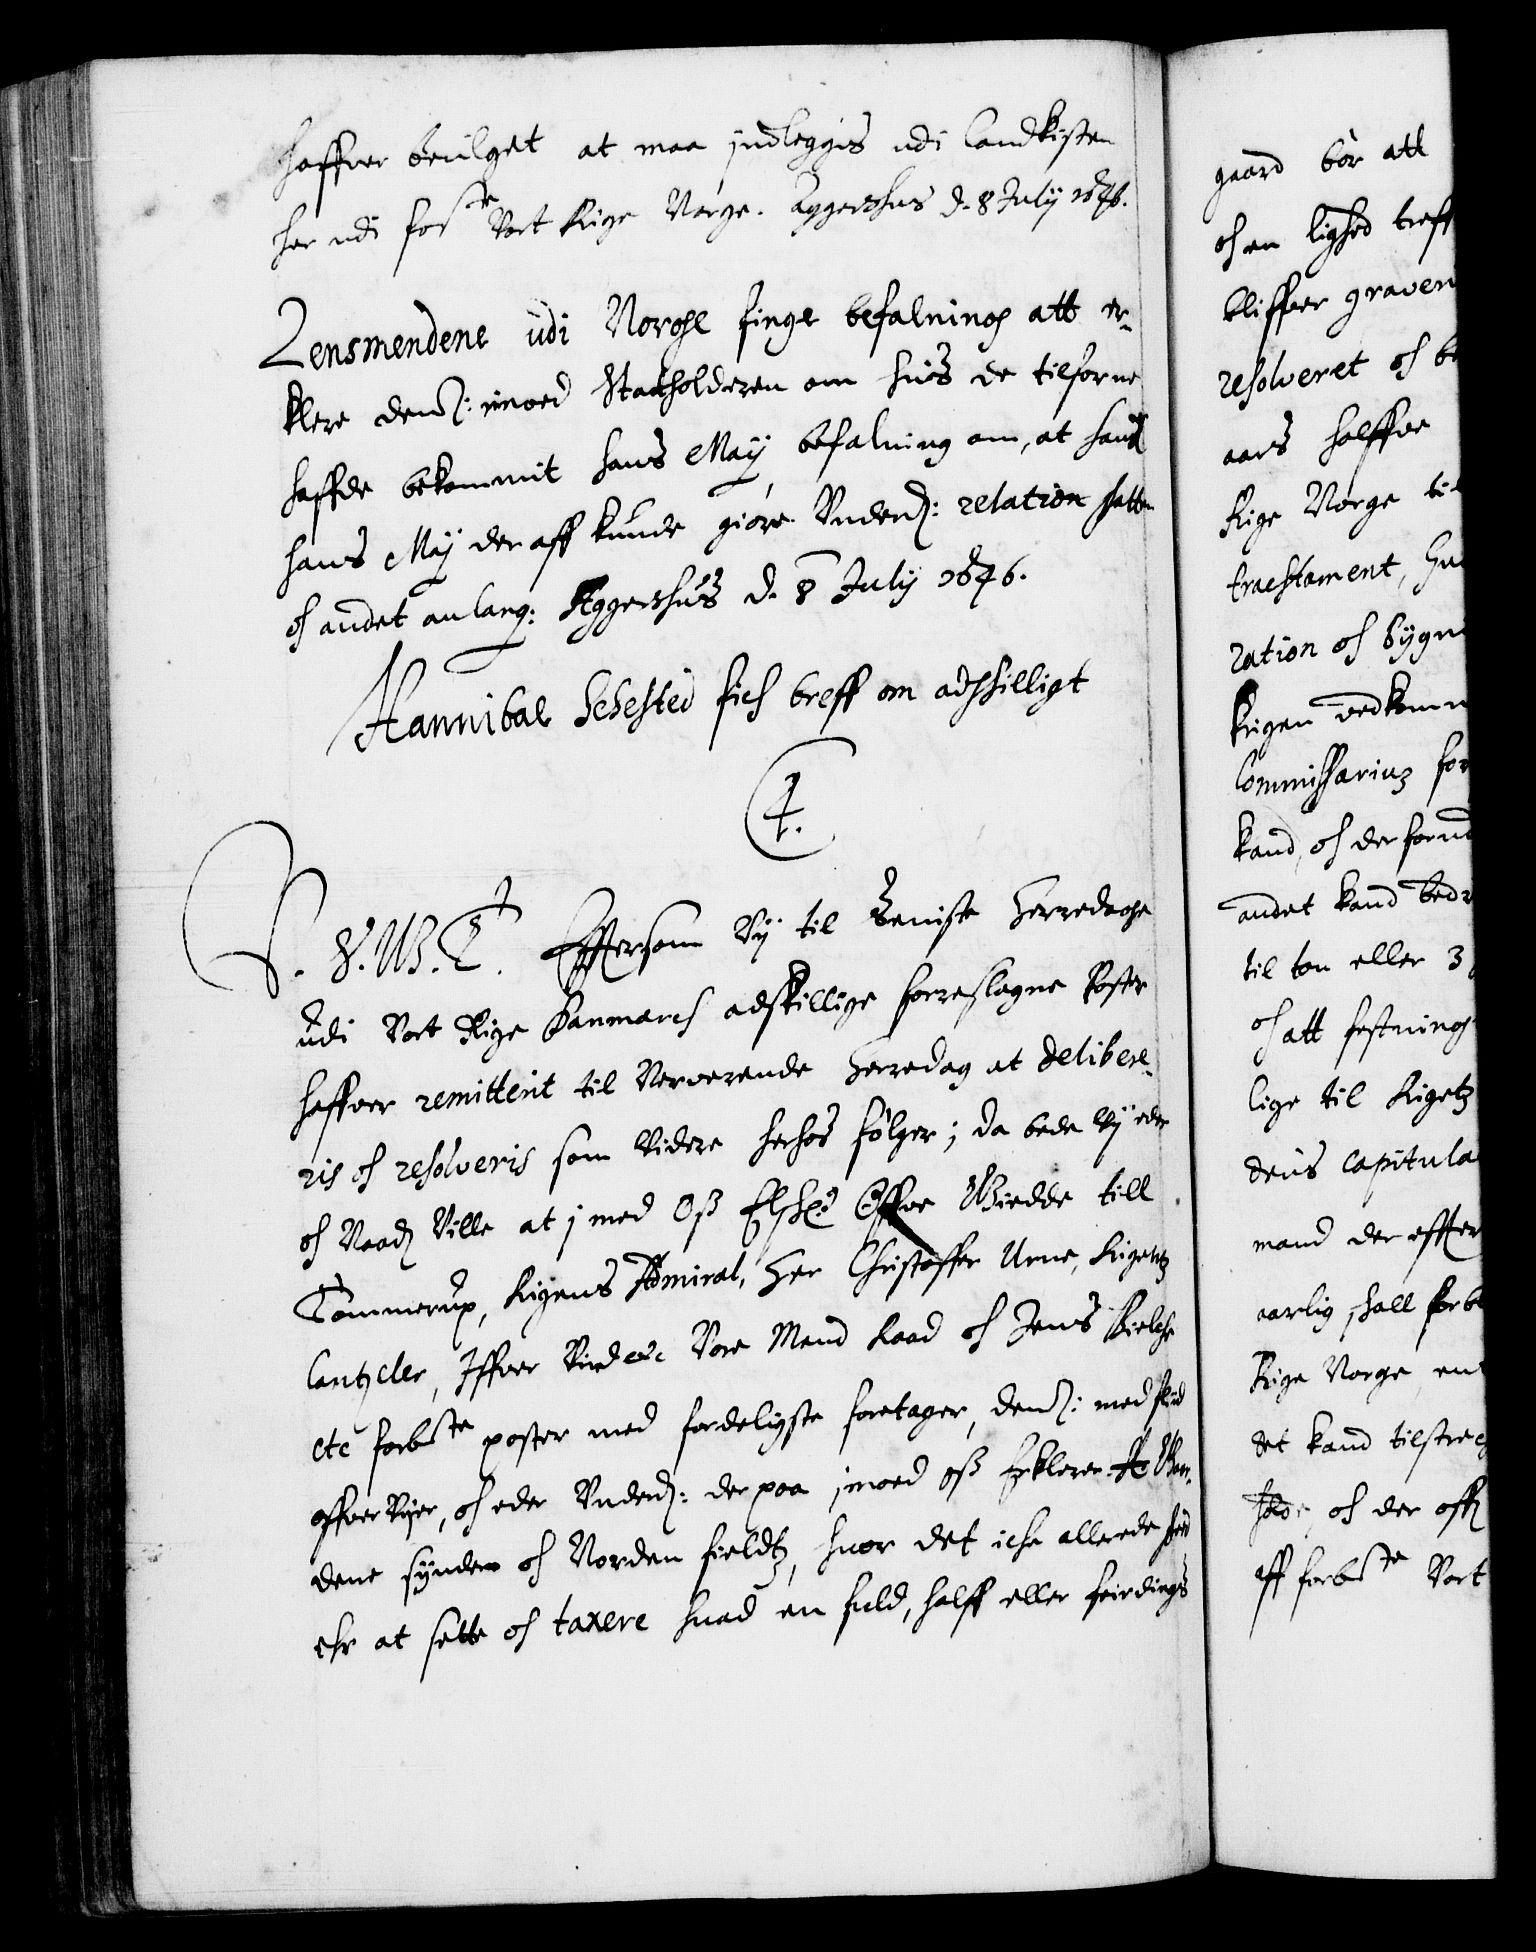 haffuer beuilget at maa jndleggis udi landkisten
her udi for:ste Vort Rige Norge. Aggershus d. 8 July 1646.
Lensmendene udi Norge finge befalning att er-
klere dennem: imoed Statholderen om huis de tilforne
haffde bekommit hans May: befalning om, at hand
hans May: der aff kunde giøre Underd: relation skatten
och andet anlang: Aggershus d. 8 July 1646.
Hannibal Sehested fich breff om adskilligt
C 4.
V. G. T. Eftersom Vy til Seniste Herredage
udi Vort Rige Danmarch adskillige forreslagne Poster
haffuer remitterit til Nerverende Herredag at delibere-
ris och resolveris som Videre herhos følger; da bede Vy eder
och Naad: Ville at j med Oss Elschel: Offue Giedde till
Tommerup, Rigens Admiral, Her Christoffer Urne, Rigens
Cantzeler, Iffuer Vind etc Vore Mend Raad och Jens Bielche
etc forbe:te poster med forderligste foretager, dennem: med flid
offuerveyer, och eder Underd: der paa jmoed oss Erklerer.
dene synden och Norden fieldtz, huor det iche allerede skeed
ehr at sette och taxere huad en fuld, halff eller feirdings
gaard bør att
och en lighed treff
bliffuer graver
resolveret och be
aars halffue
Rige Norge til
tractament, hu
ration och bygni
krigen vedkomm
Commissariuz for
kand, och der forud
andet kand bed
til ton eller 3
och att festning
lige til Rigetz
deris capitula
mand der effter
aarlig, skall forb
Rige Norge en
det kand tilstrech
och der off
aff forbe:te Vort